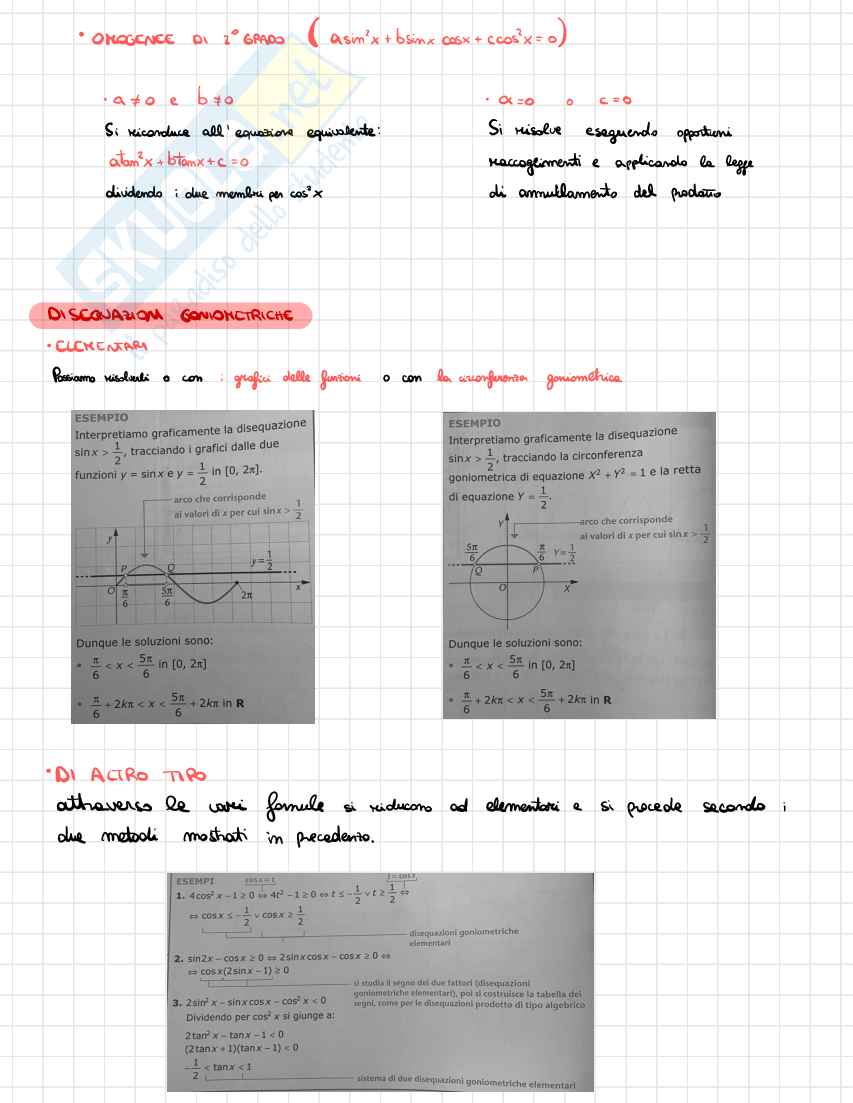 • OMOGENEE DI 2° GRADO ( a sin²x + b sinx cosx + c cos²x = 0 )
• a ≠ 0 e b ≠ 0
Si riconduce all'equazione equivalente:
a tan²x + b tanx + c = 0
dividendo i due membri per cos²x
• a = 0 o c = 0
Si risolve eseguendo opportuni
raccoglimenti e applicando la legge
di annullamento del prodotto
SKUOLA.net
il paradiso dello studente
DISEQUAZIONI GONIOMETRICHE
• ELEMENTARI
Possiamo risolverli o con i grafici delle funzioni o con la circonferenza goniometrica
ESEMPIO
Interpretiamo graficamente la disequazione
sin x > 1/2, tracciando i grafici dalle due
funzioni y = sin x e y = 1/2 in [0, 2π].
arco che corrisponde
ai valori di x per cui sin x > 1/2
y
P Q y = 1/2
O π/6 5π/6 2π x
Dunque le soluzioni sono:
• π/6 < x < 5π/6 in [0, 2π]
• π/6 + 2kπ < x < 5π/6 + 2kπ in R
ESEMPIO
Interpretiamo graficamente la disequazione
sin x > 1/2, tracciando la circonferenza
goniometrica di equazione X² + Y² = 1 e la retta
di equazione Y = 1/2.
arco che corrisponde
ai valori di x per cui sin x > 1/2
Y
5π/6 π/6 Y = 1/2
Q P
O X
Dunque le soluzioni sono:
• π/6 < x < 5π/6 in [0, 2π]
• π/6 + 2kπ < x < 5π/6 + 2kπ in R
• DI ALTRO TIPO
attraverso le varie formule si riducono ad elementari e si procede secondo i
due metodi mostrati in precedenza.
ESEMPI
cos x = t
t = cos x
1. 4cos² x − 1 ≥ 0 ⇔ 4t² − 1 ≥ 0 ⇔ t ≤ −1/2 ∨ t ≥ 1/2 ⇔
⇔ cos x ≤ −1/2 ∨ cos x ≥ 1/2
disequazioni goniometriche
elementari
2. sin2x − cos x ≥ 0 ⇔ 2sin x cos x − cos x ≥ 0 ⇔
⇔ cos x(2sin x − 1) ≥ 0
si studia il segno dei due fattori (disequazioni
goniometriche elementari), poi si costruisce la tabella dei
segni, come per le disequazioni prodotto di tipo algebrico
3. 2sin² x − sin x cos x − cos² x < 0
Dividendo per cos² x si giunge a:
2tan² x − tan x − 1 < 0
(2tan x + 1)(tan x − 1) < 0
−1/2 < tan x < 1
sistema di due disequazioni goniometriche elementari